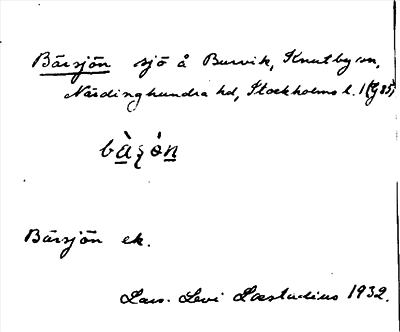 Bärsjön sjö å Burvik, Knutby sn,
Närdinghundra hd, Stockholms l.
Bärsjön ek.
Lars Levi Læstadius 1932.